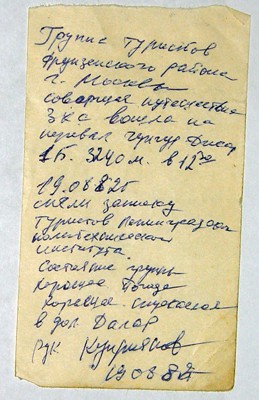 Группа туристов
Фрунзенского района
г. Москвы
совершая путешествие
3 к.с вошла на
перевал
1Б. 3240 м. в 12
19.08 82г
сняли записку
туристов Ленинградского
политехнического
института.
Состояние группы
хорошее Погода
хорошая. спускаемся
в дол. Далар
рук.
19 08 82